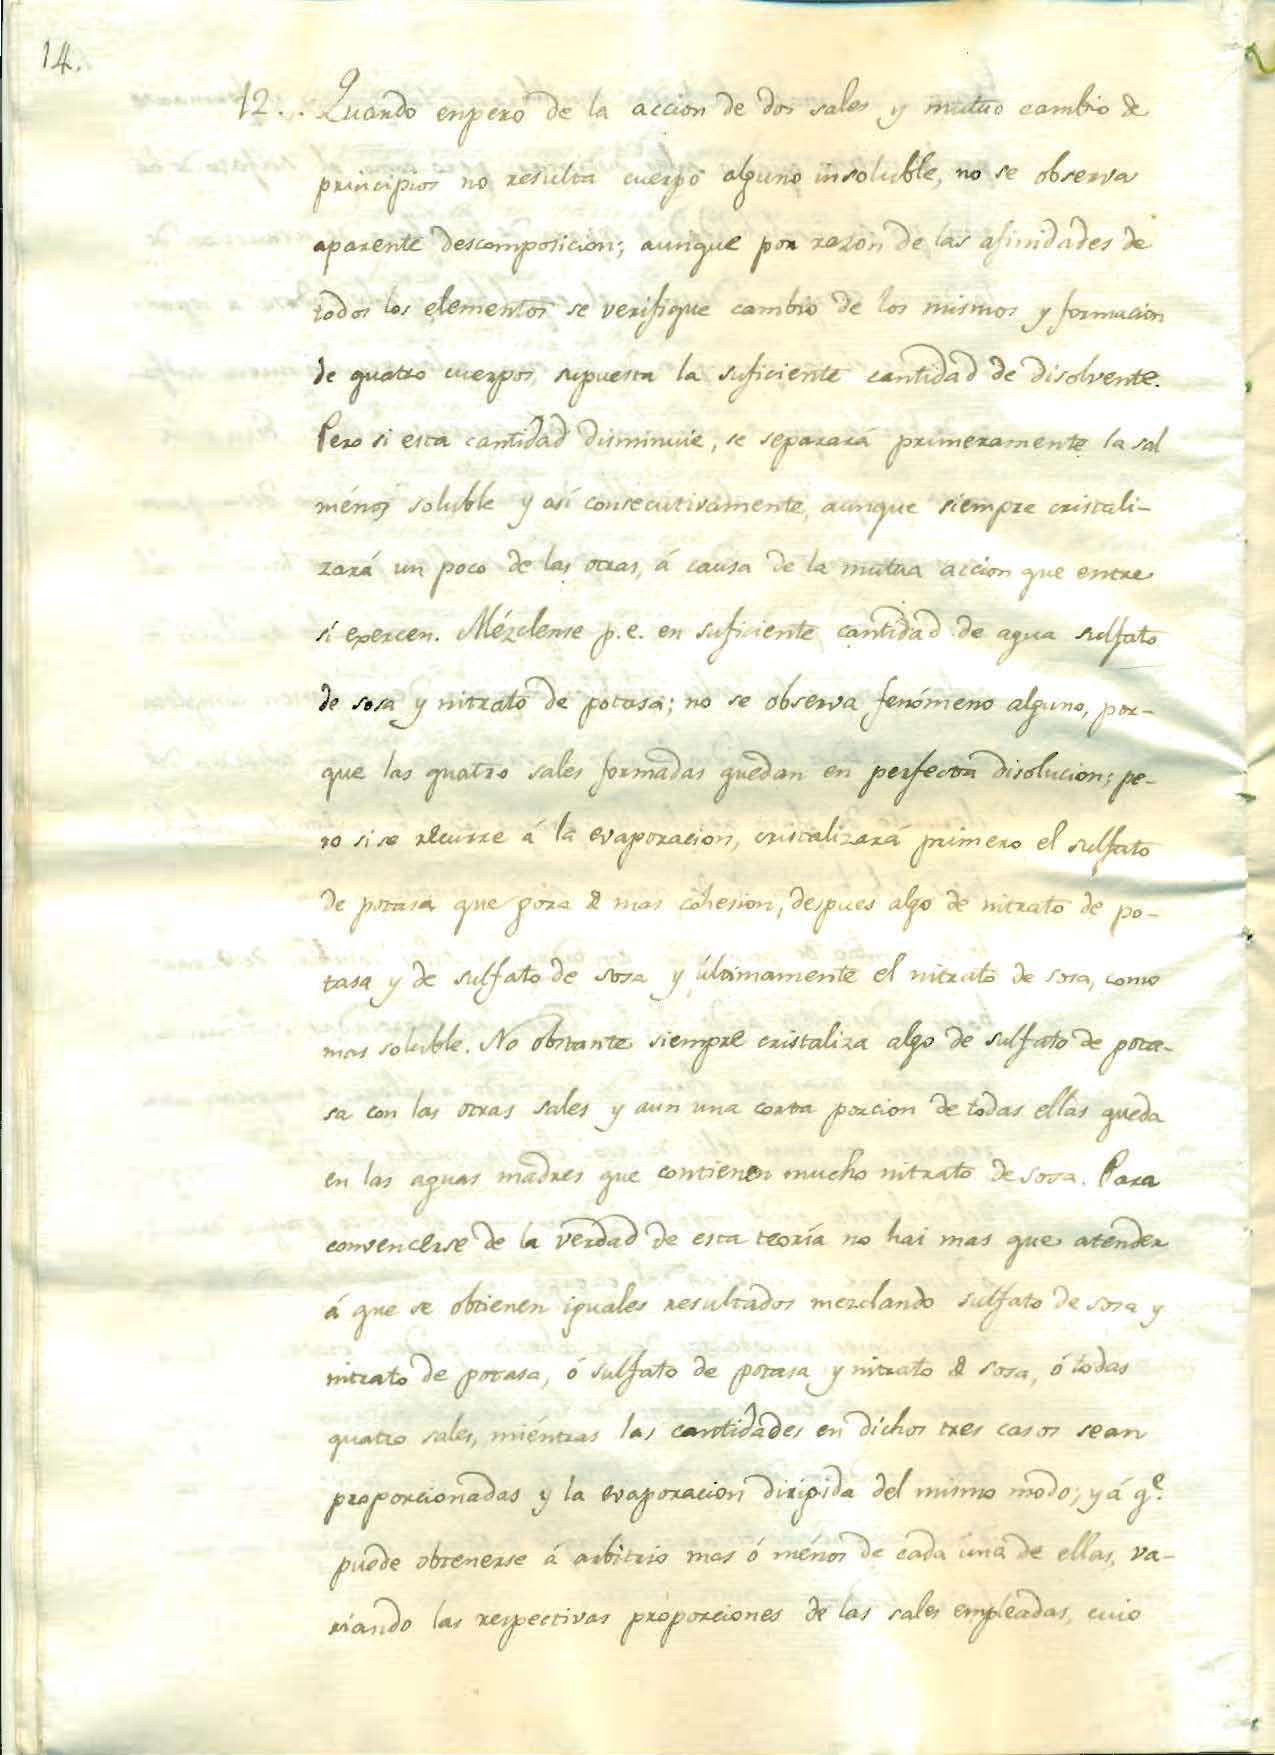 14.
12... Quando enpero de la accion de dos sales y mutuo cambio de
principios no resulta cuerpo alguno insoluble, no se observa
aparente descomposicion; aunque por razon de las afinidades de
todos los elementos se verifique cambio de los mismos y formacion
de quatro cuerpos, supuesta la suficiente cantidad de disolvente.
Pero si esta cantidad disminuie, se separará primeramente la sal
ménos soluble y así consecutivamente, aunque siempre cristali-
zará un poco de las otras, á causa de la mutua accion que entre
sí exercen. Mézclense p.e. en suficiente cantidad de agua sulfato
de sosa y nitrato de potasa; no se observa fenómeno alguno, por-
que las quatro sales formadas quedan en perfecta disolucion; pe-
ro si se recurre á la evaporacion, cristalizará primero el sulfato
de potasa que goza de mas cohesion, despues algo de nitrato de po-
tasa y de sulfato de sosa y últimamente el nitrato de sosa, como
mas soluble. No obstante siempre cristaliza algo de sulfato de pota-
sa con las otras sales y aun una corta porcion de todas ellas queda
en las aguas madres que contienen mucho nitrato de sosa. Para
convencerse de la verdad de esta teoría no hai mas que atender
á que se obtienen iguales resultados mezclando sulfato de sosa y
nitrato de potasa, ó sulfato de potasa y nitrato de sosa, ó todas
quatro sales, miéntras las cantidades en dichos tres casos sean
proporcionadas y la evaporacion dirigida del mismo modo; y á qe.
puede obtenerse á arbitrio mas ó ménos de cada una de ellas, va-
riando las respectivas proporciones de las sales empleadas, cuio